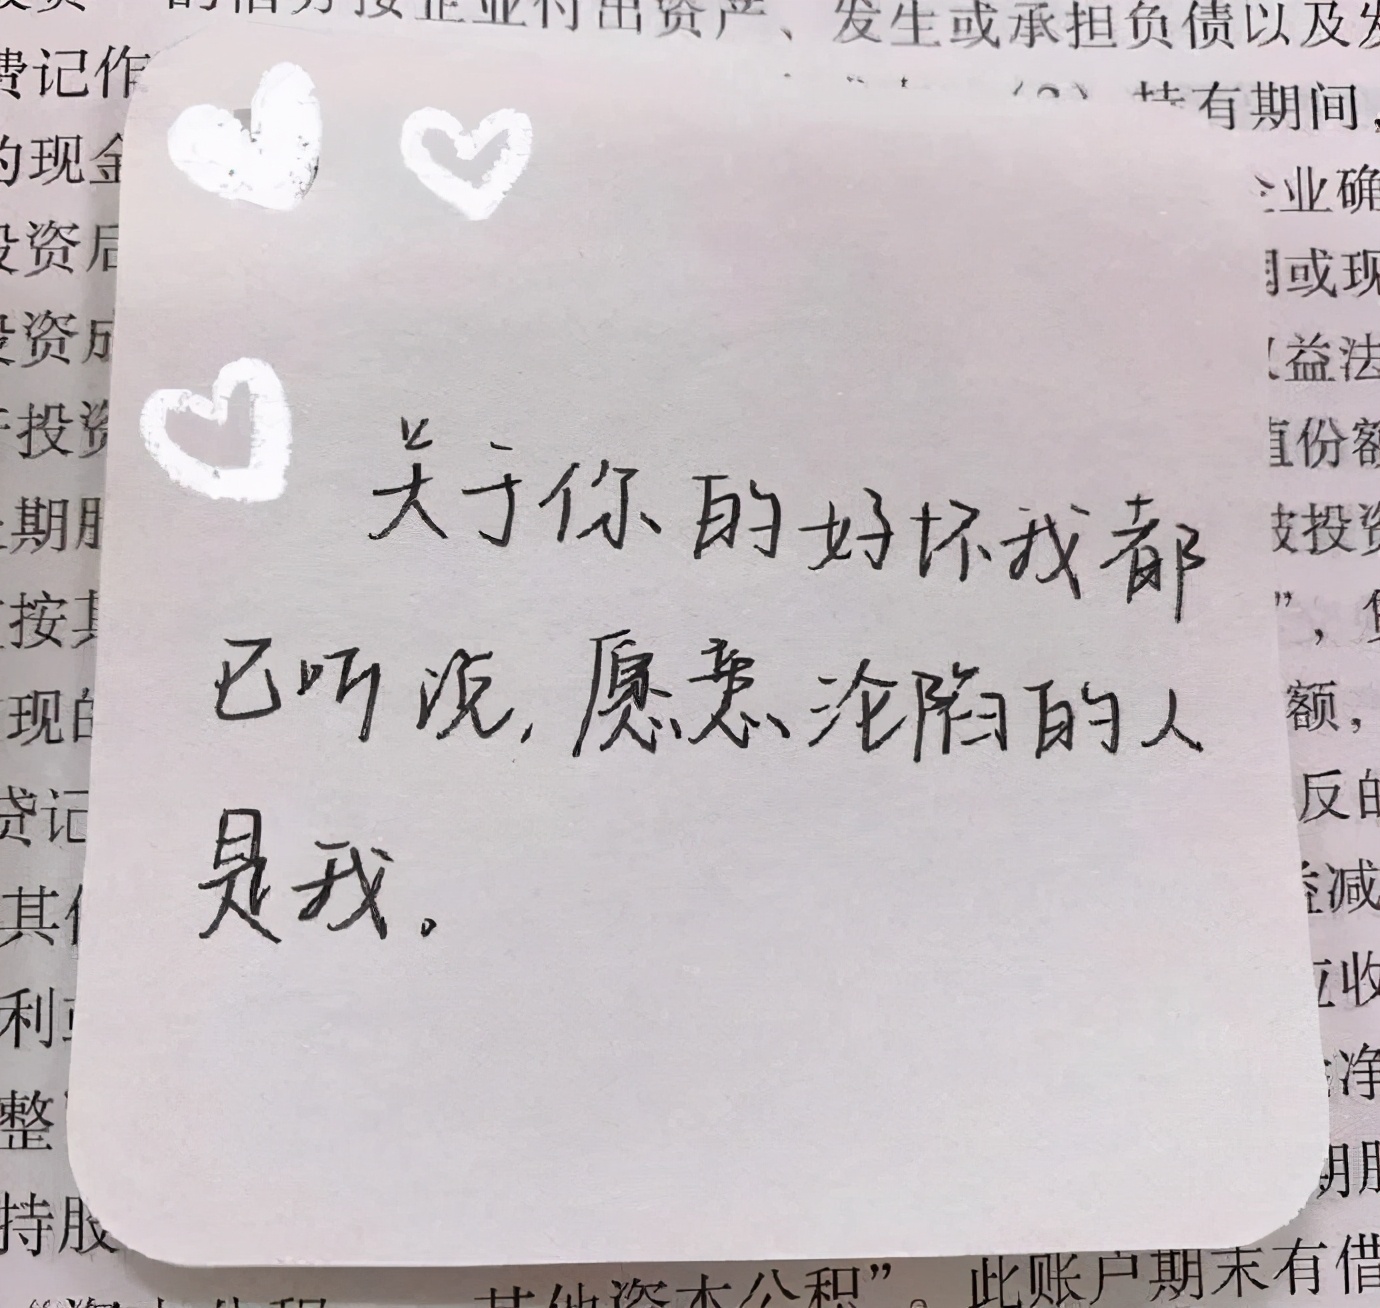 的借方按企业付出资产、发生或承担负债以及发
费记作
持有期间,
的现金
企业确
投资后
或现
投资成
权益法
投资
值份额
期股
被投资
关于你的好坏我都
按其
”,
已听说,愿意沦陷的人
现的
额,
贷记
反的
是我。
其他
益减
利或
应收
整
净
期股
持股
其他资本公积”。此账户期末有借